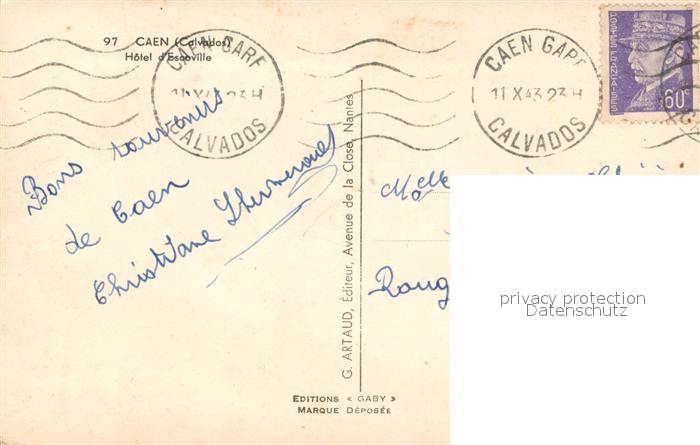 97 CAEN (Calvados)
Hôtel d'Escoville
CAEN GARE
11 X 43 23 H
CALVADOS
CAEN GARE
11 X 43 23 H
CALVADOS
60c
Bons souvenirs
de Caen
Christiane
G. ARTAUD, Éditeur, Avenue de la Close, Nantes
Melle
Roug
privacy protection
Datenschutz
EDITIONS « GABY »
MARQUE DÉPOSÉE